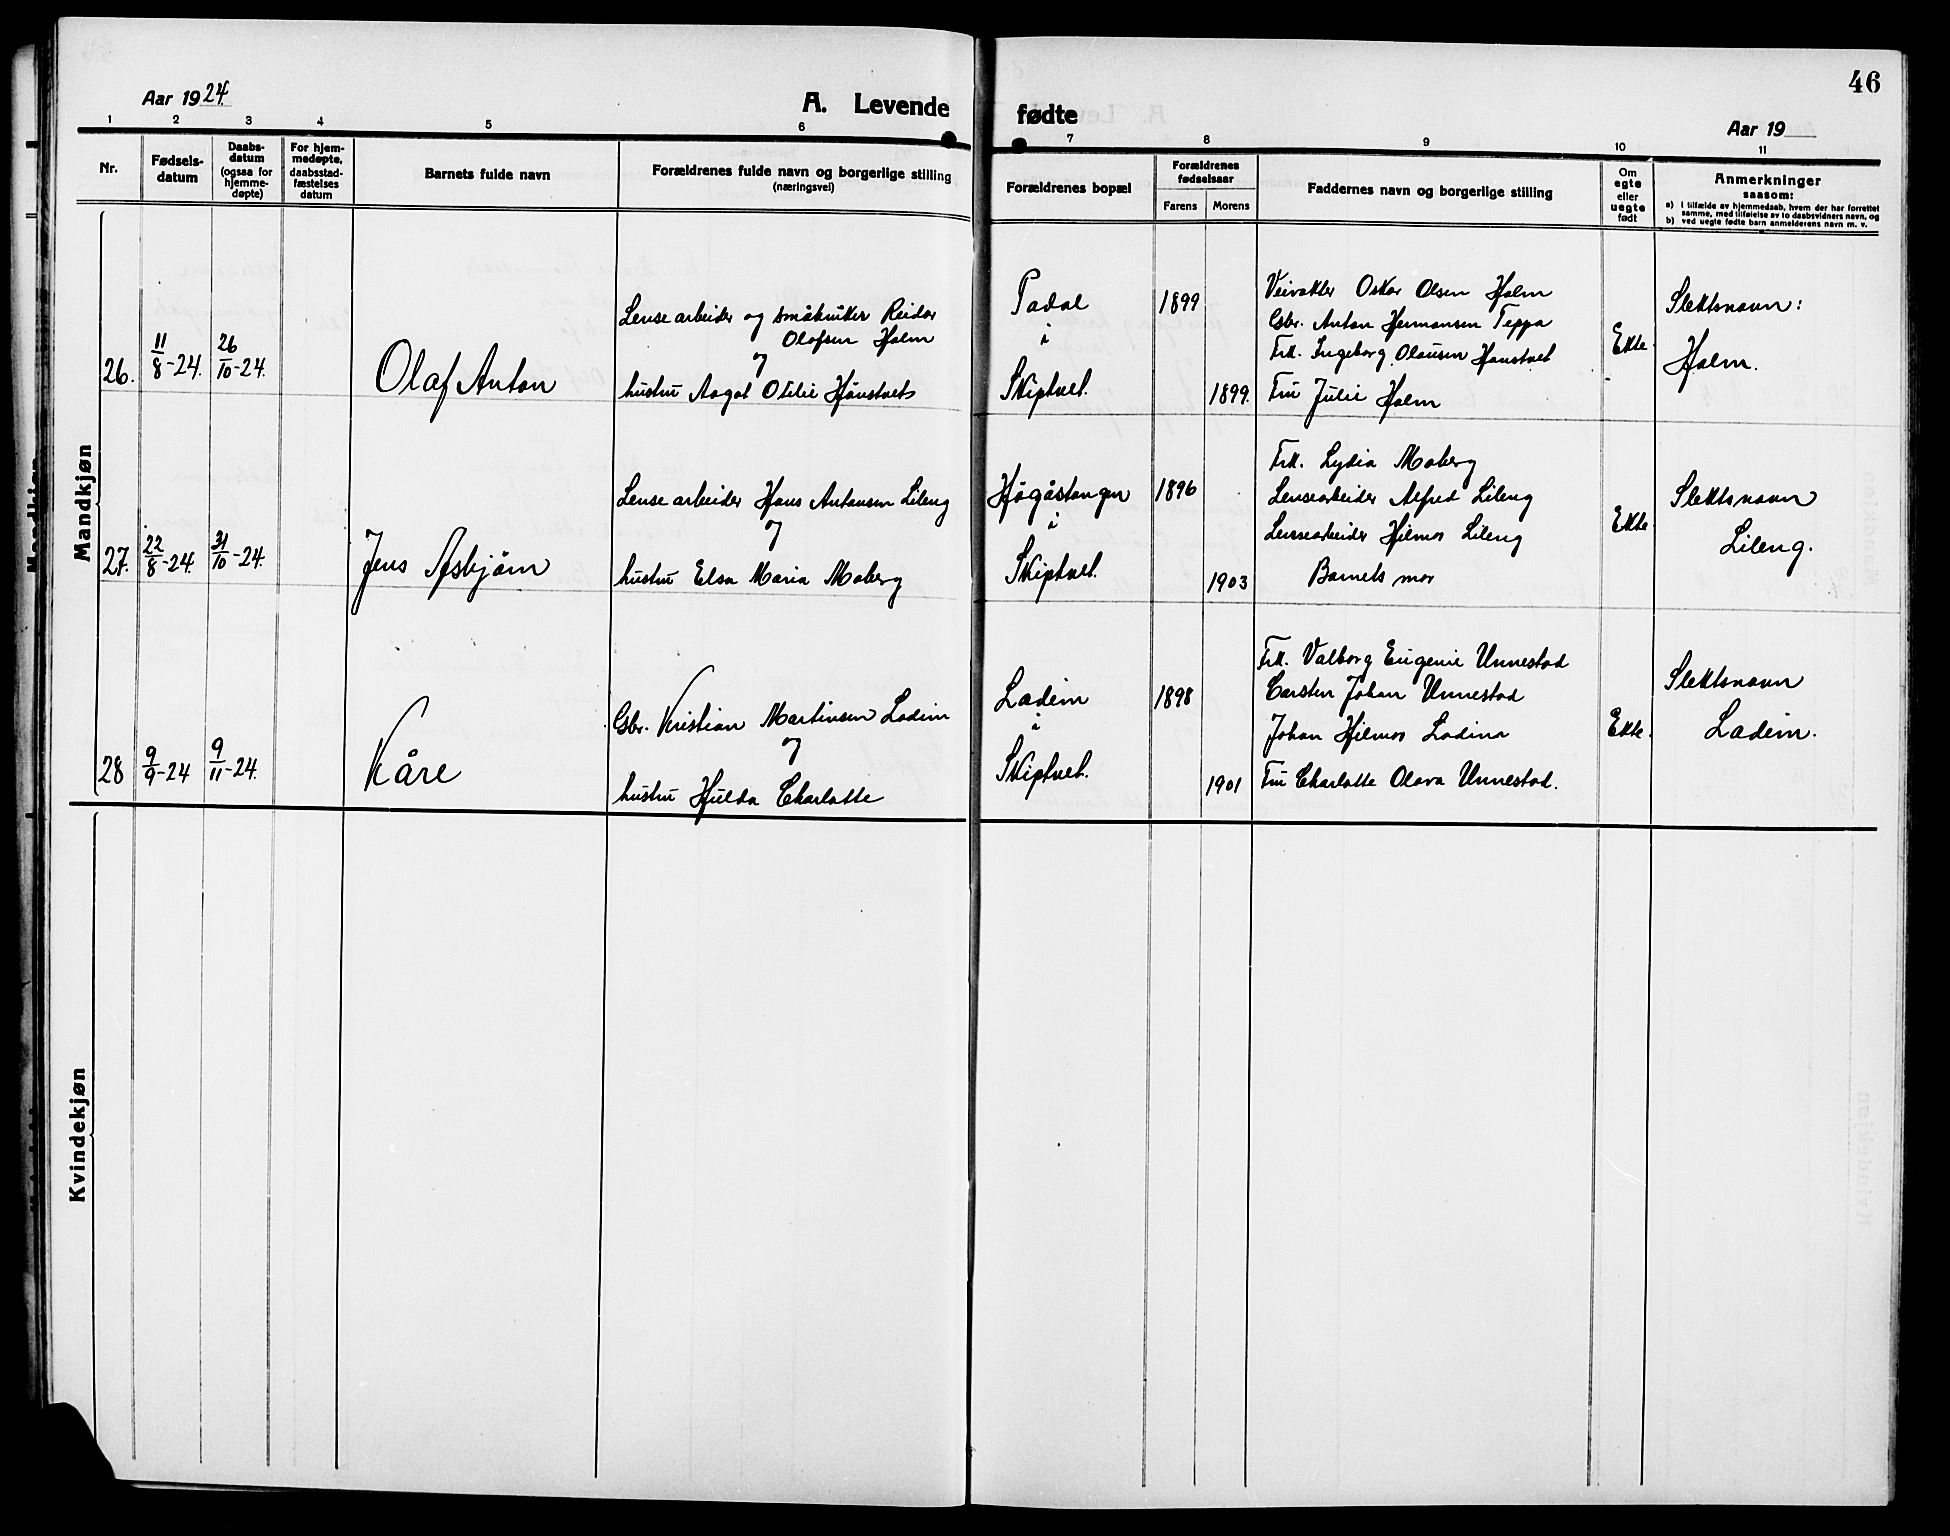 46
Aar 1924.
A. Levende fødte
Aar 19
1 2 3 4 5 6 7 8 9 10 11
Nr.
Fødsels-
datum
Daabs-
datum
(ogsaa for
hjemme-
døpte)
For hjem-
medøpte,
daabsstad-
fæstelses
datum
Barnets fulde navn
Forældrenes fulde navn og borgerlige stilling
(næringsvei)
Forældrenes bopæl
Forældrenes
fødselsaar
Farens Morens
Faddernes navn og borgerlige stilling
Om
egte
eller
uegte
født
Anmerkninger
saasom:
a) I tilfælde av hjemmedaab, hvem der har forrettet
samme, med tilføielse av to daabsvidners navn, og
b) ved uegte fødte barn anmelderens navn m. v.
Mandkjøn
26.
11/8-24.
26/10-24.
Olaf Anton
Lensearbeider og småbruker Reidar
Olafsen Holm
og
hustru Aagot Otilie Hånstvet
Tadal
i
Skiptvet.
1899
1899.
Veivokter Oskar Olsen Holm
Gbr. Anton Hermansen Teppa
Frk. Ingeborg Olausen Hanstvet
Fru Julie Holm
Ekte.
Slektsnavn:
Holm.
27.
22/8-24.
31/10-24.
Jens Asbjørn
Lensearbeider Hans Antonsen Lileng
og
hustru Elsa Maria Moberg
Hågåstangen
i
Skiptvet.
1896
1903
Frk. Lydia Moberg
Lensearbeider Alfred Lileng
Lensearbeider Hilmar Lileng
Barnets mor
Ekte.
Slektsnavn
Lileng.
28
9/9-24
9/11-24.
Kåre
Gbr. Kristian Martinsen Ladim
og
hustru Hulda Charlotte
Ladeim
i
Skiptvet.
1898
1901
Frk. Valborg Eugenie Unnestad
Carsten Johan Unnestad
Johan Hilmar
Fru Charlotte Olava Unnestad.
Ekte.
Slektsnavn
Ladeim.
Kvindekjøn